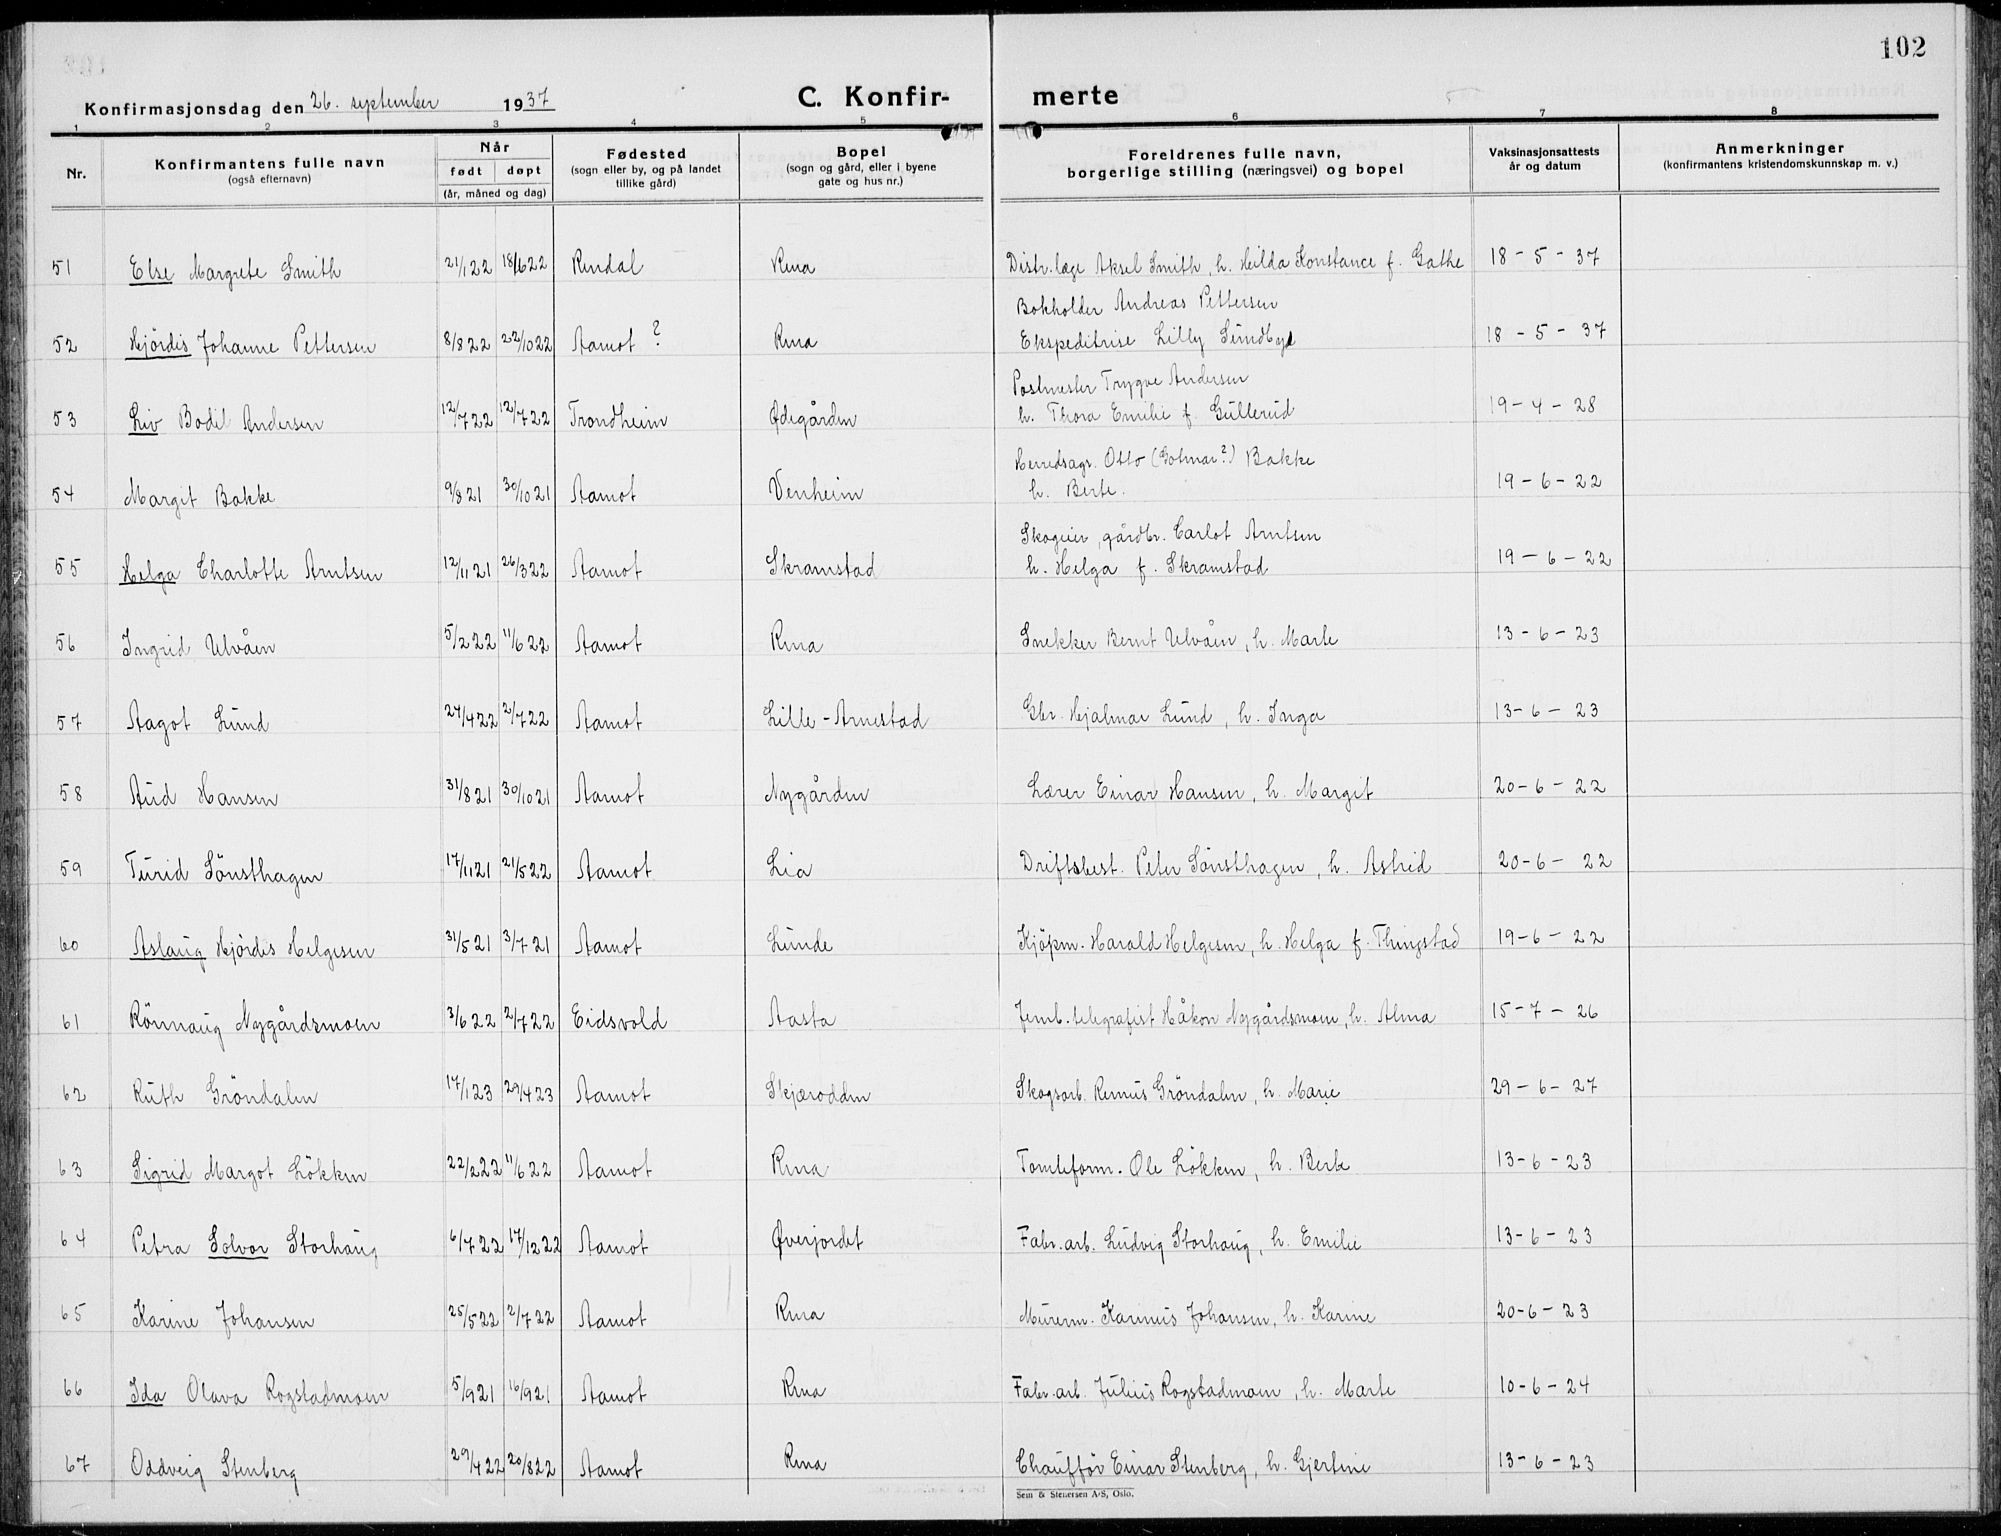 102
Konfirmasjonsdag den 26. september 1937
C. Konfir-
merte
1 2 3 4 5 6 7 8
Nr.
Konfirmantens fulle navn
(også efternavn)
Når
født døpt
(år, måned og dag)
Fødested
(sogn eller by, og på landet
tillike gård)
Bopel
(sogn og gård, eller i byene
gate og hus nr.)
Foreldrenes fulle navn,
borgerlige stilling (næringsvei) og bopel
Vaksinasjonsattests
år og datum
Anmerkninger
(konfirmantens kristendomskunnskap m. v.)
51 Else Margrete Smith 21/1 22 18/6 22 Rindal Rena Distr.læge Aksel Smith, h. Hilda Konstance f. Gathe 18-5-37
Bokholder Andreas Pettersen
52 Hjördis Johanne Pettersen 8/8 22 22/10 22 Aamot ? Rena Ekspeditrise Lilly Sundbye 18-5-37
Postmester Trygve Andersen
53 Liv Bodil Andersen 12/7 22 12/7 22 Trondheim Ødegården h. Thora Emilie f. Gullerud 19-4-28
Herredsags. Otto (Gotmar?) Bakke
54 Margit Bakke 9/8 21 30/10 21 Aamot Venheim h. Berte. 19-6-22
Skogeier, gårdbr. Carlot Arntsen
55 Helga Charlotte Arntsen 12/11 21 26/3 22 Aamot Skramstad h. Helga f. Skramstad 19-6-22
56 Ingrid Ulvåen 5/2 22 11/6 22 Aamot Rena Snekker Bernt Ulvåen, h. Marte 13-6-23
57 Aagot Lund 27/4 22 2/7 22 Aamot Lille-Arnestad Gbr. Hjalmar Lund, h. Inga 13-6-23
58 Aud Hansen 31/8 21 30/10 21 Aamot Nygården Lærer Einar Hansen, h. Margit 20-6-22
59 Turid Sönsthagen 17/11 21 21/5 22 Aamot Lia Driftsbest. Peter Sönsthagen, h. Astrid 20-6-22
60 Aslaug Hjördis Helgesen 31/5 21 3/7 21 Aamot Lunde Kjöpm. Harald Helgesen, h. Helga f. Thingstad 19-6-22
61 Rönnaug Nygårdsmoen 3/6 22 2/7 22 Eidsvold Aasta Jernb.telegrafist Håkon Nygårdsmoen, h. Alma 15-7-26
62 Ruth Gröndalen 17/1 23 29/4 23 Aamot Skjærodden Skogsarb. Remus Gröndalen, h. Marie 29-6-27
63 Sigrid Margot Lökken 22/2 22 11/6 22 Aamot Rena Tomteform. Ole Lökken, h. Berte 13-6-23
64 Petra Solvor Storhaug 6/7 22 17/12 22 Aamot Øverjordet Fabr.arb. Ludvig Storhaug, h. Emilie 13-6-23
65 Karine Johansen 25/5 22 2/7 22 Aamot Rena Murerm. Karinus Johansen, h. Karine 20-6-23
66 Ida Olava Rogstadmoen 5/9 21 16/9 21 Aamot Rena Fabr.arb. Julius Rogstadmoen, h. Marte 10-6-24
67 Oddveig Stenberg 29/4 22 20/8 22 Aamot Rena Chaufför Einar Stenberg, h. Gjertine 13-6-23
Sem & Stenersen A/S, Oslo.